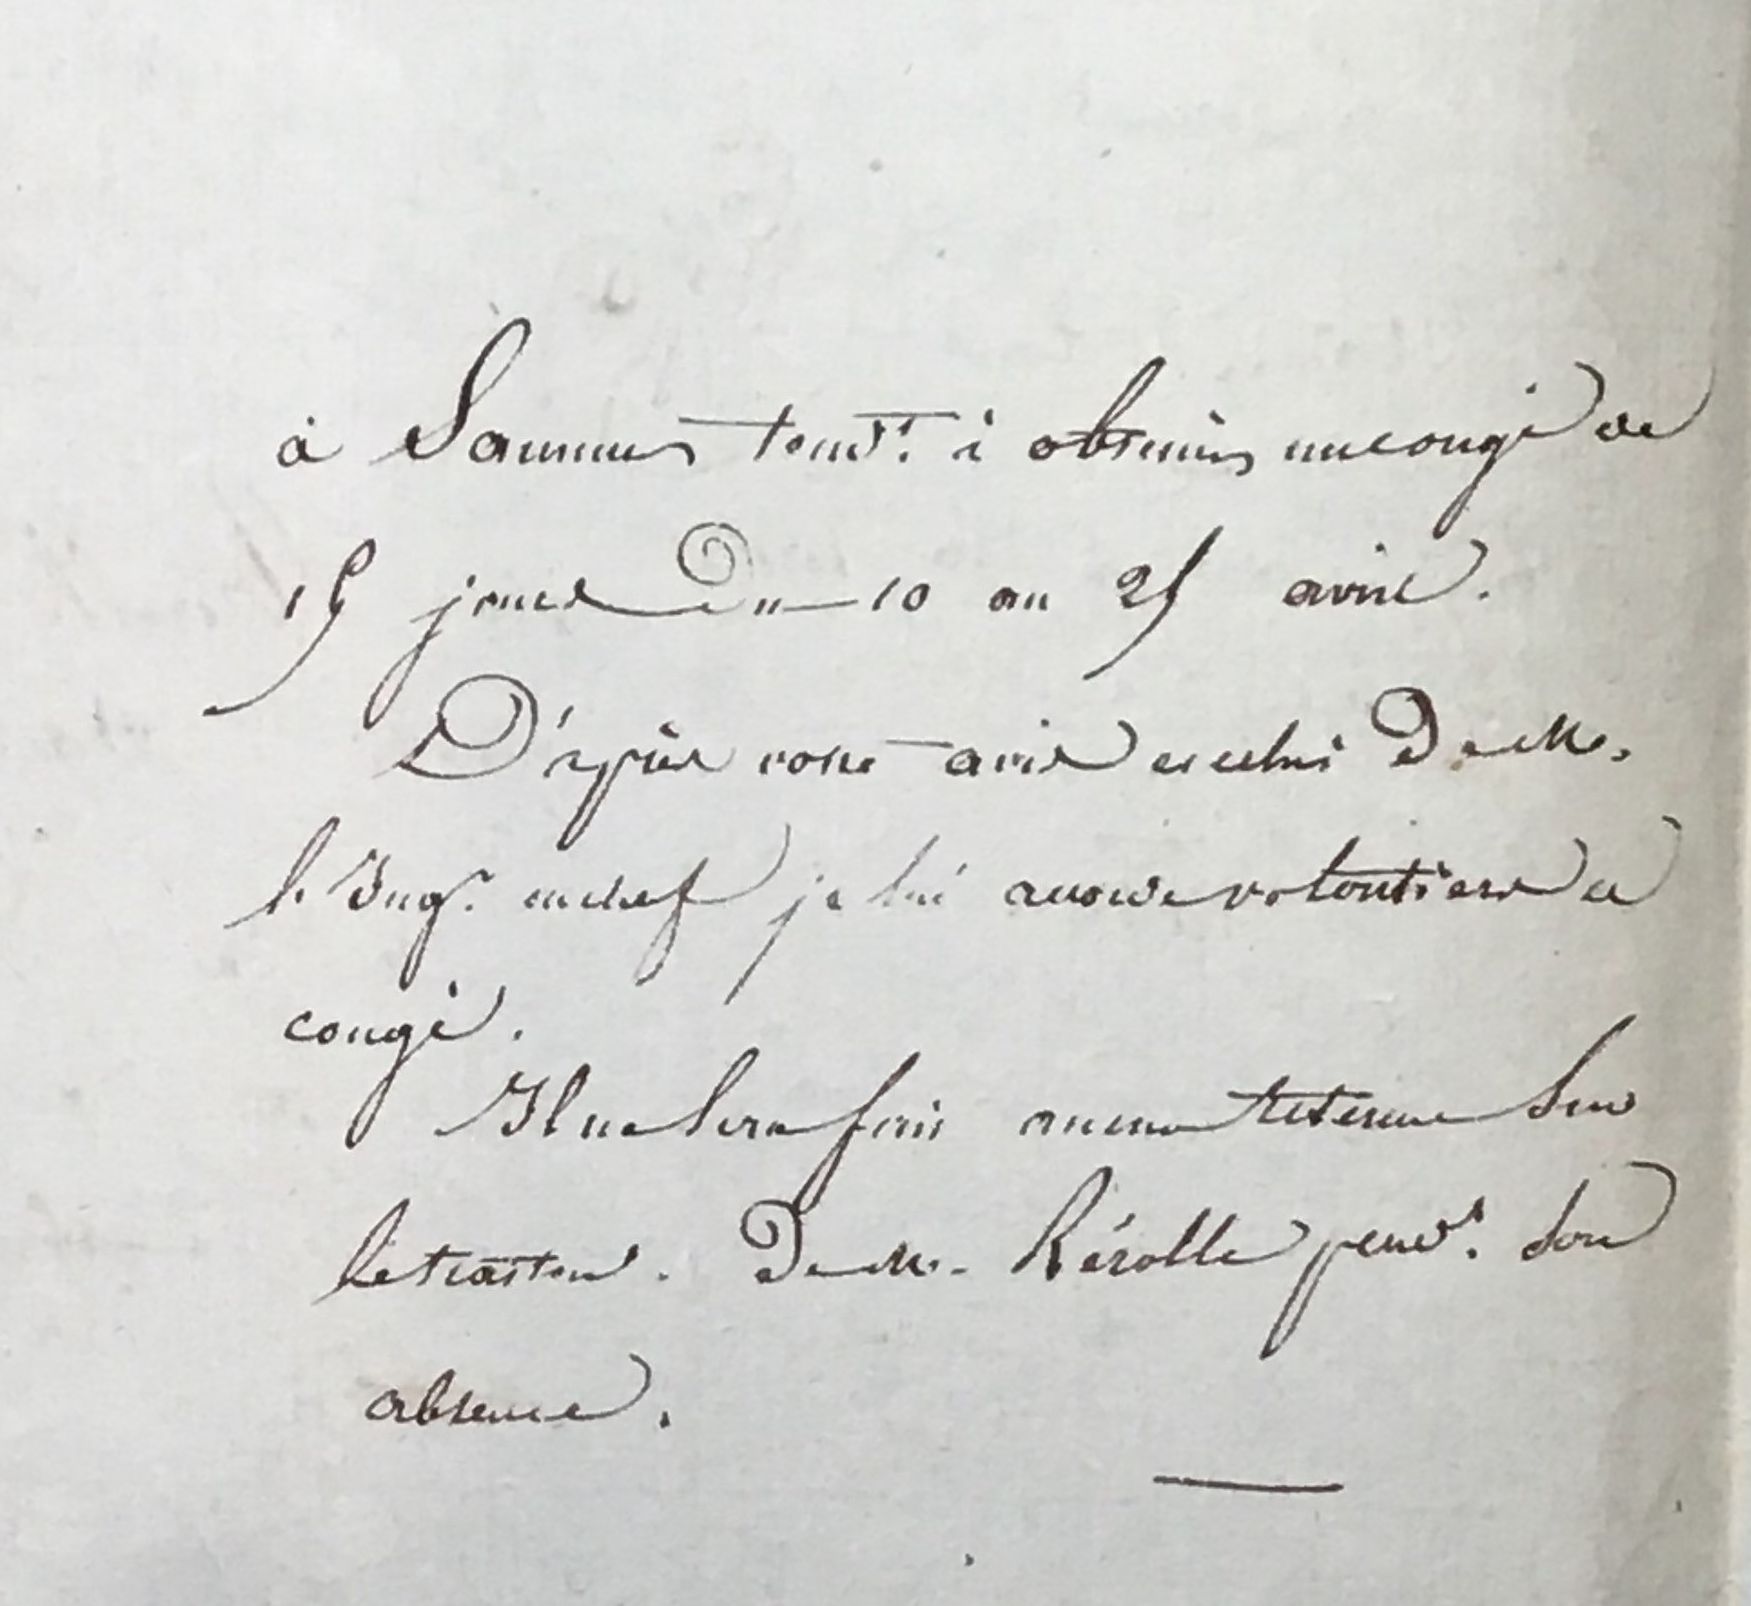 à Saumur tend.t à obtenir un congé de
15 jours du 10 au 25 avril.
D'après votre avis et celui de M.
l'Ing.r en chef je lui accorde volontiers ce
congé.
Il ne sera fait aucune retenue sur
le traitem.t de M. Kérolle pend.t son
absence.